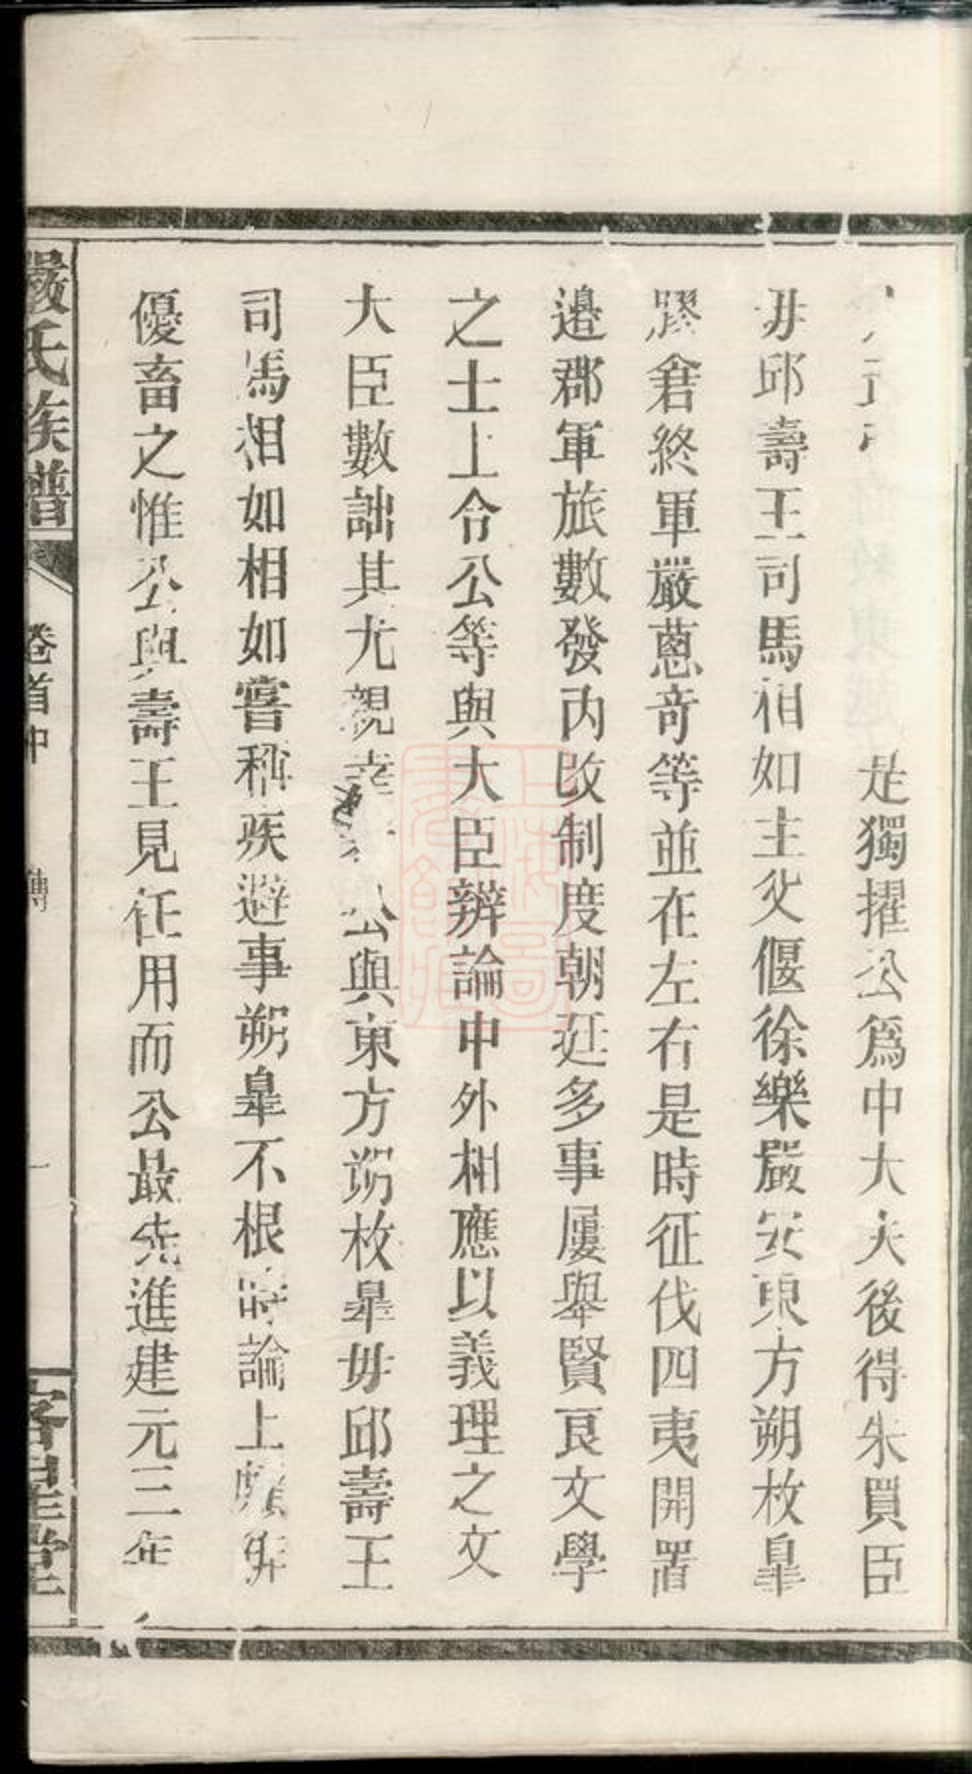 是獨擢公爲中大夫後得朱買臣
毋邱壽王司馬相如主父偃徐樂嚴安東方朔枚臯
膠倉終軍嚴蔥奇等並在左右是時征伐四夷開置
邉郡軍旅數發内改制度朝廷多事屢舉賢良文學
之士上令公等與大臣辨論中外相應以義理之文
大臣數詘其尤親幸 公與東方朔枚臯毋邱壽王
司馬相如相如嘗稱疾避事朔臯不根 論上頗
優畜之惟公與壽王見任用而公最先進建元三年
嚴氏族譜
卷首中
傳
一
客星堂
上海圖書館藏